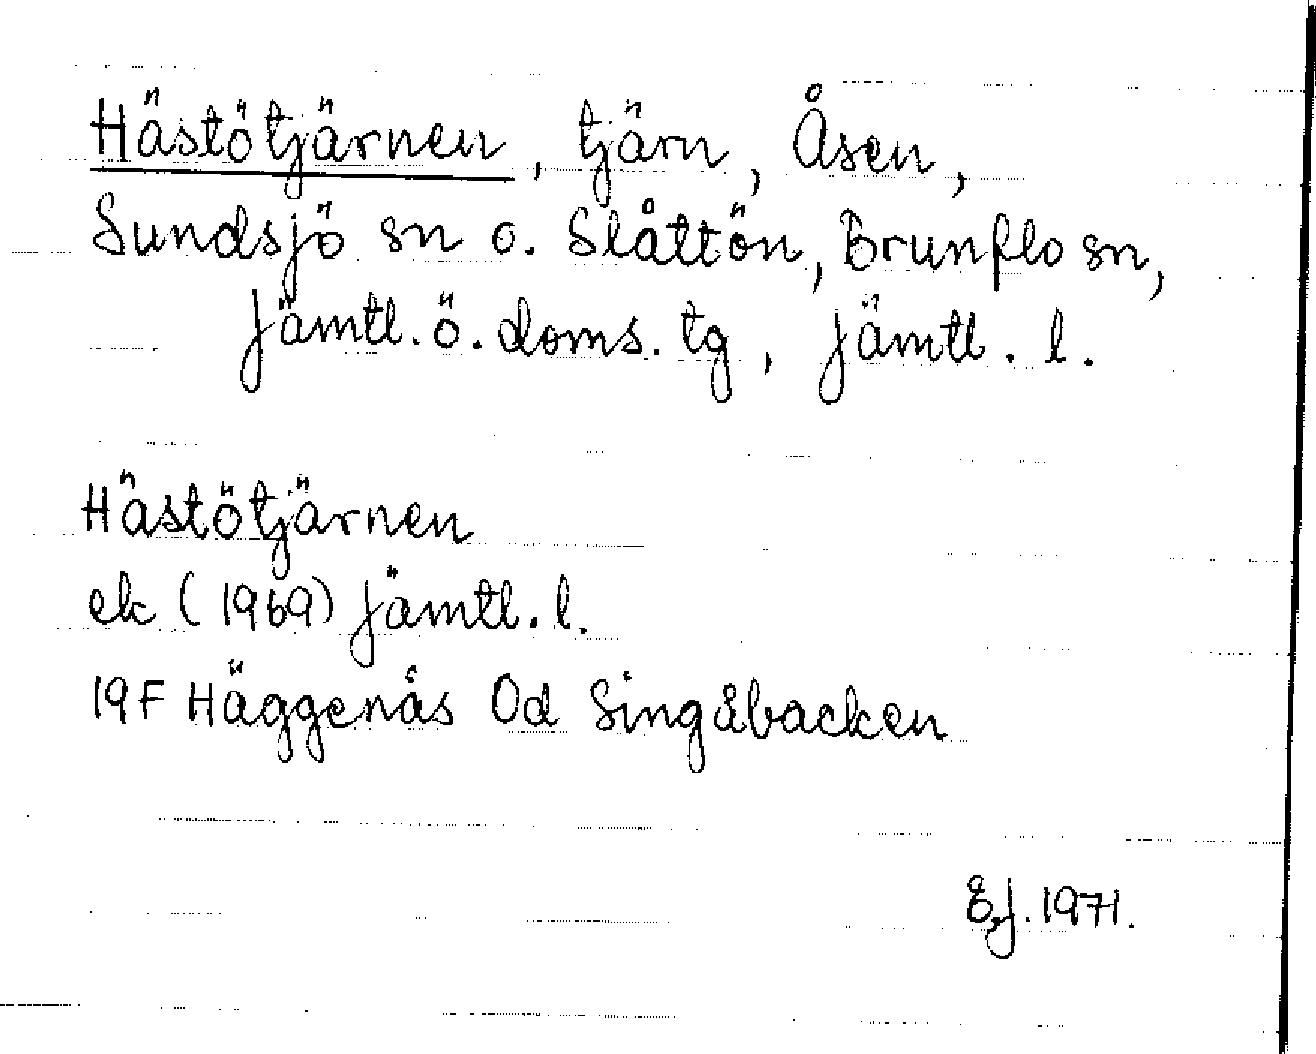 Hästötjärnen, tjärn, Åsen,
Sundsjö sn o. Slåttön, Brunflo sn,
Jämtl. ö. doms. tg, Jämtl. l.
Hästötjärnen
ek (1969) Jämtl. l.
19F Häggenås 0d Singåbacken
E.J. 1971.